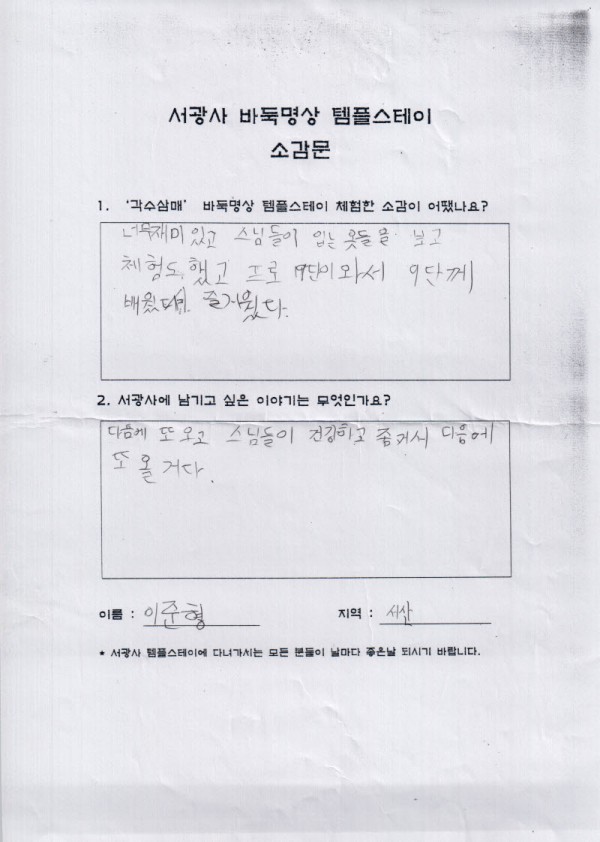 서광사 바둑명상 템플스테이
소감문
1. '각수삼매' 바둑명상 템플스테이 체험한 소감이 어땠나요?
너무재미 있고 스님들이 입는 옷들을 보고
체험도 했고 프로 9단이 와서 9단께
배웠다. 즐거웠다.
2. 서광사에 남기고 싶은 이야기는 무엇인가요?
다음에 또 오고 스님들이 건강하고 다음에
또 올 거다.
이름 : 이준형
지역 : 서산
* 서광사 템플스테이에 다녀가시는 모든 분들이 날마다 좋은날 되시기 바랍니다.